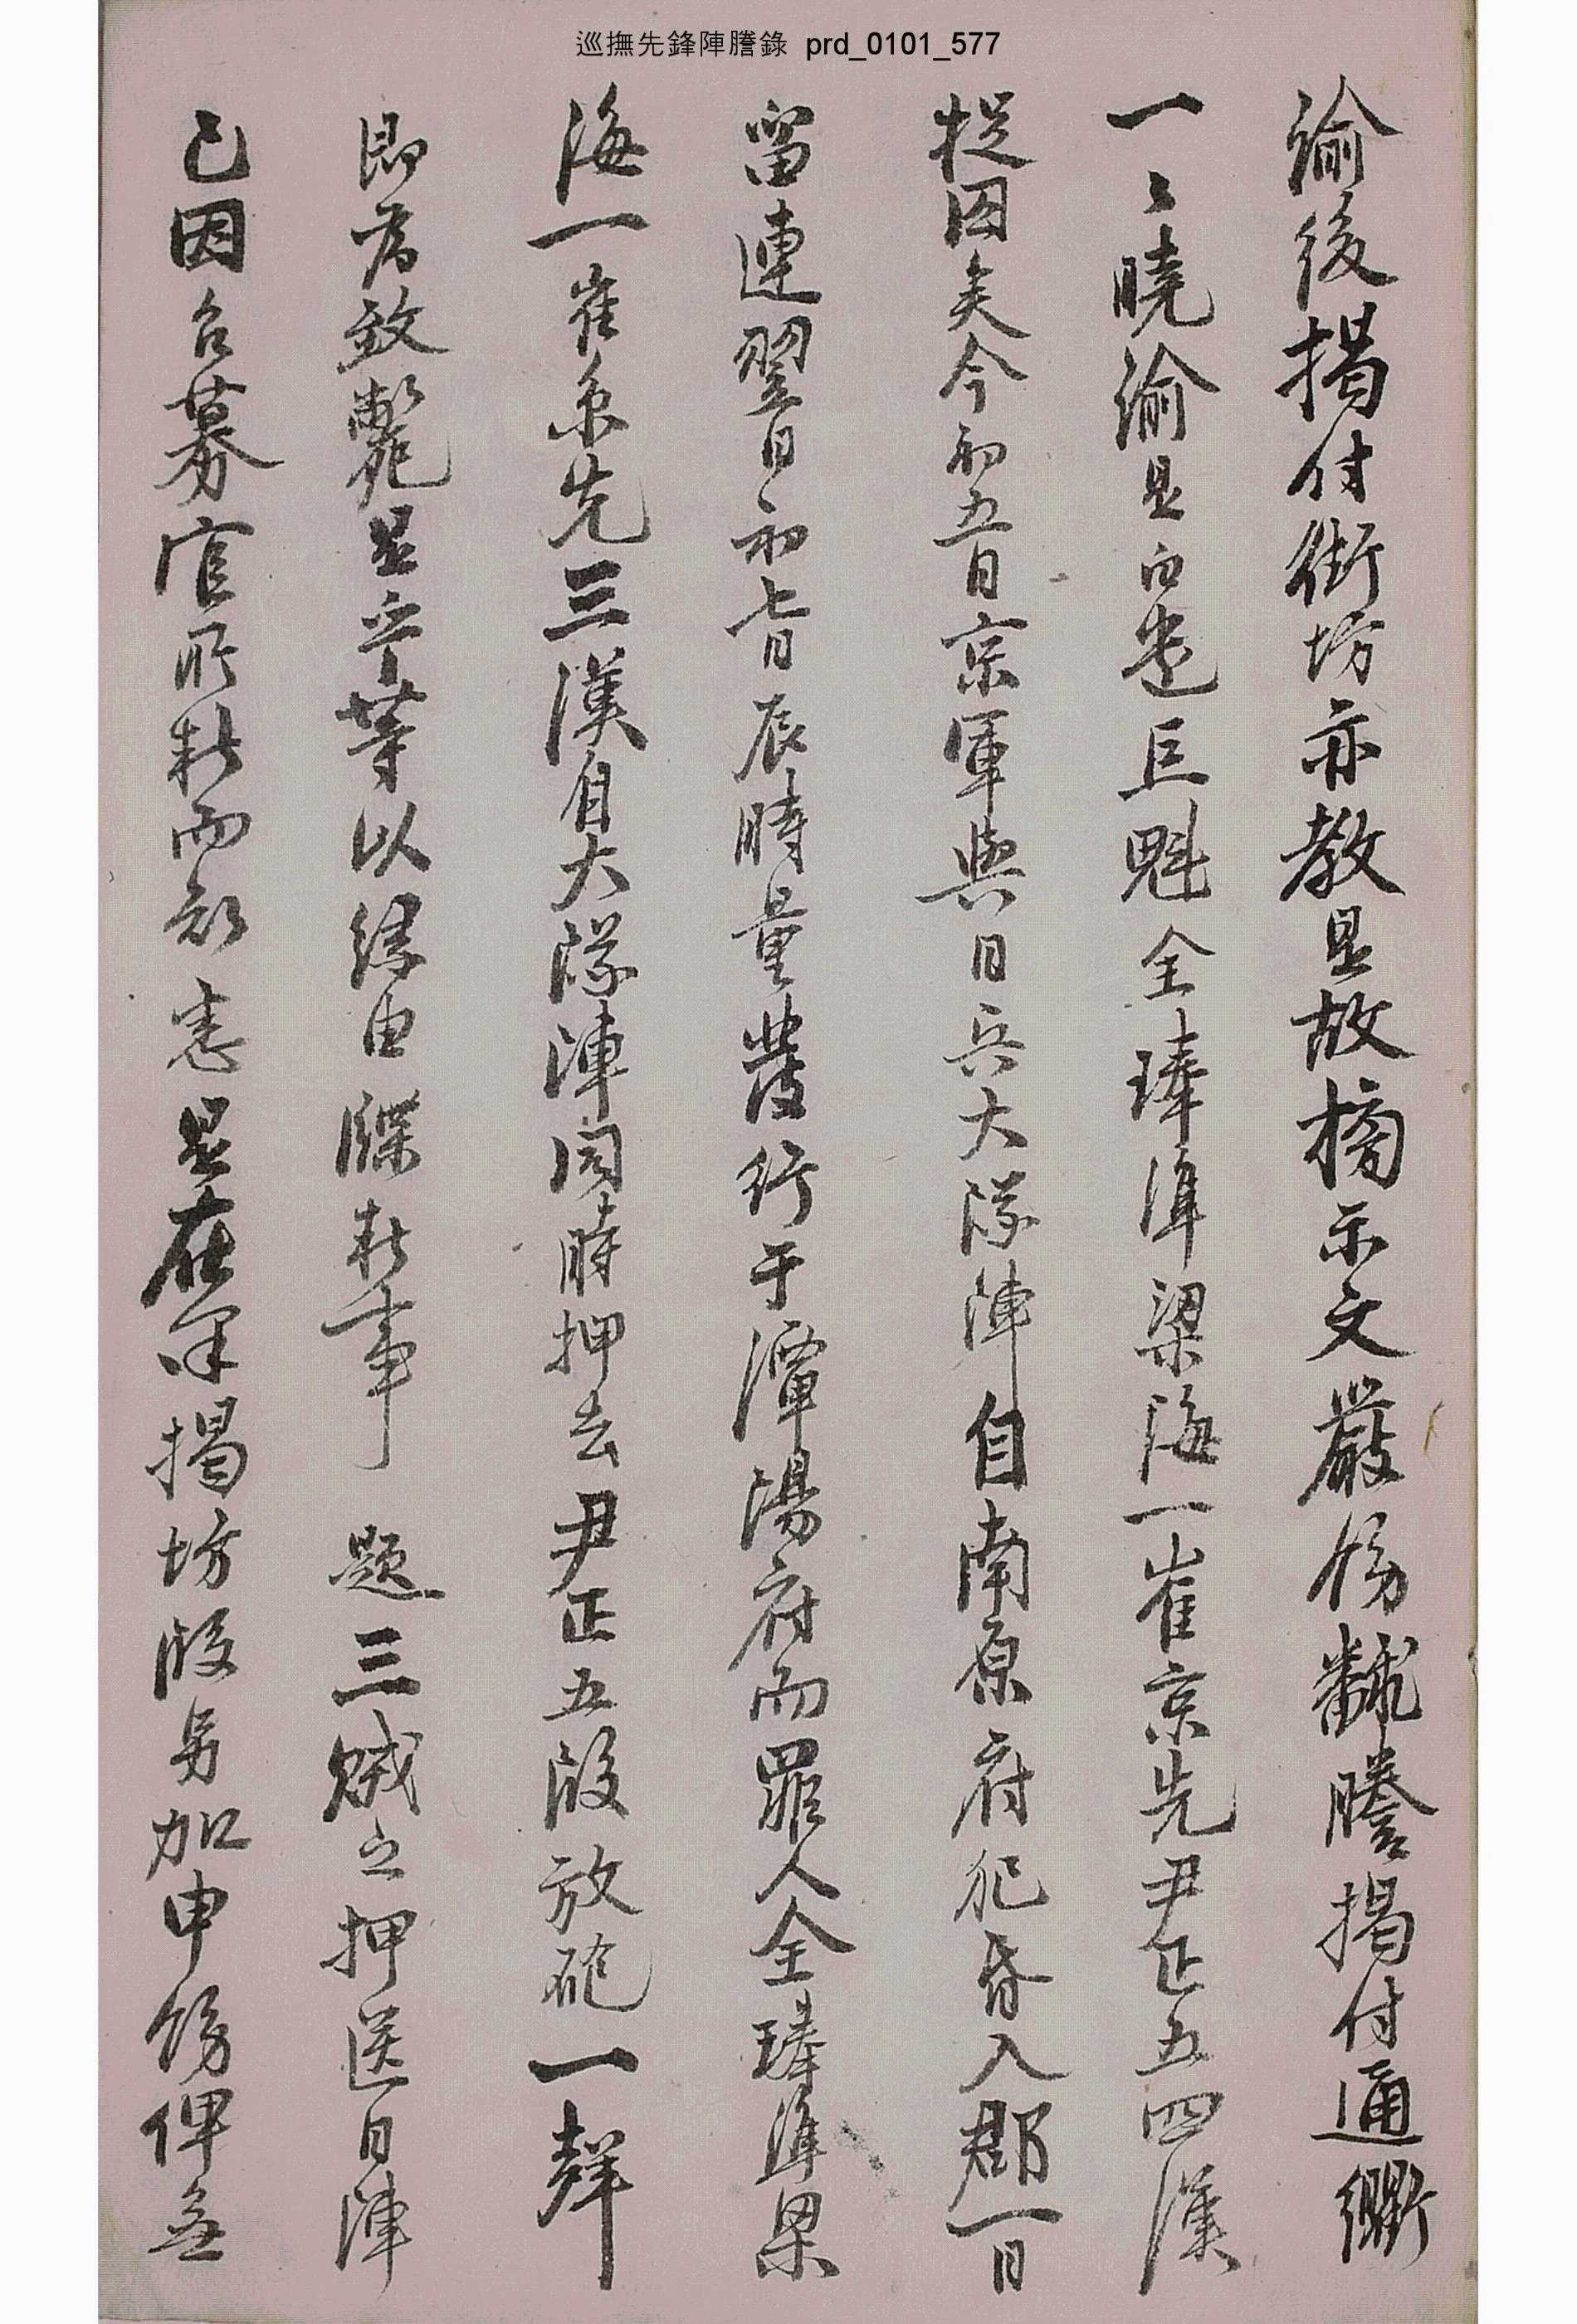 巡撫先鋒陣謄錄 prd_0101_577
諭後揭付街坊亦教是故摘示文嚴飭飜謄揭付通衢
一〻曉諭是白遣巨魁全琫準梁海一崔京先尹正五四漢
捉囚矣今初五日京軍與日兵大隊陣自南原府犯昏入郡一日
留連翌日初七日辰時量發行于潭陽府而罪人全琫準梁
海一崔京先三漢自大隊陣同時押去尹正五段放砲一聲
即爲致斃是乎等以緣由牒報事 題三賊之押送日陣
已因召募官所報而知悉是在果揭坊段另加申飭俾無